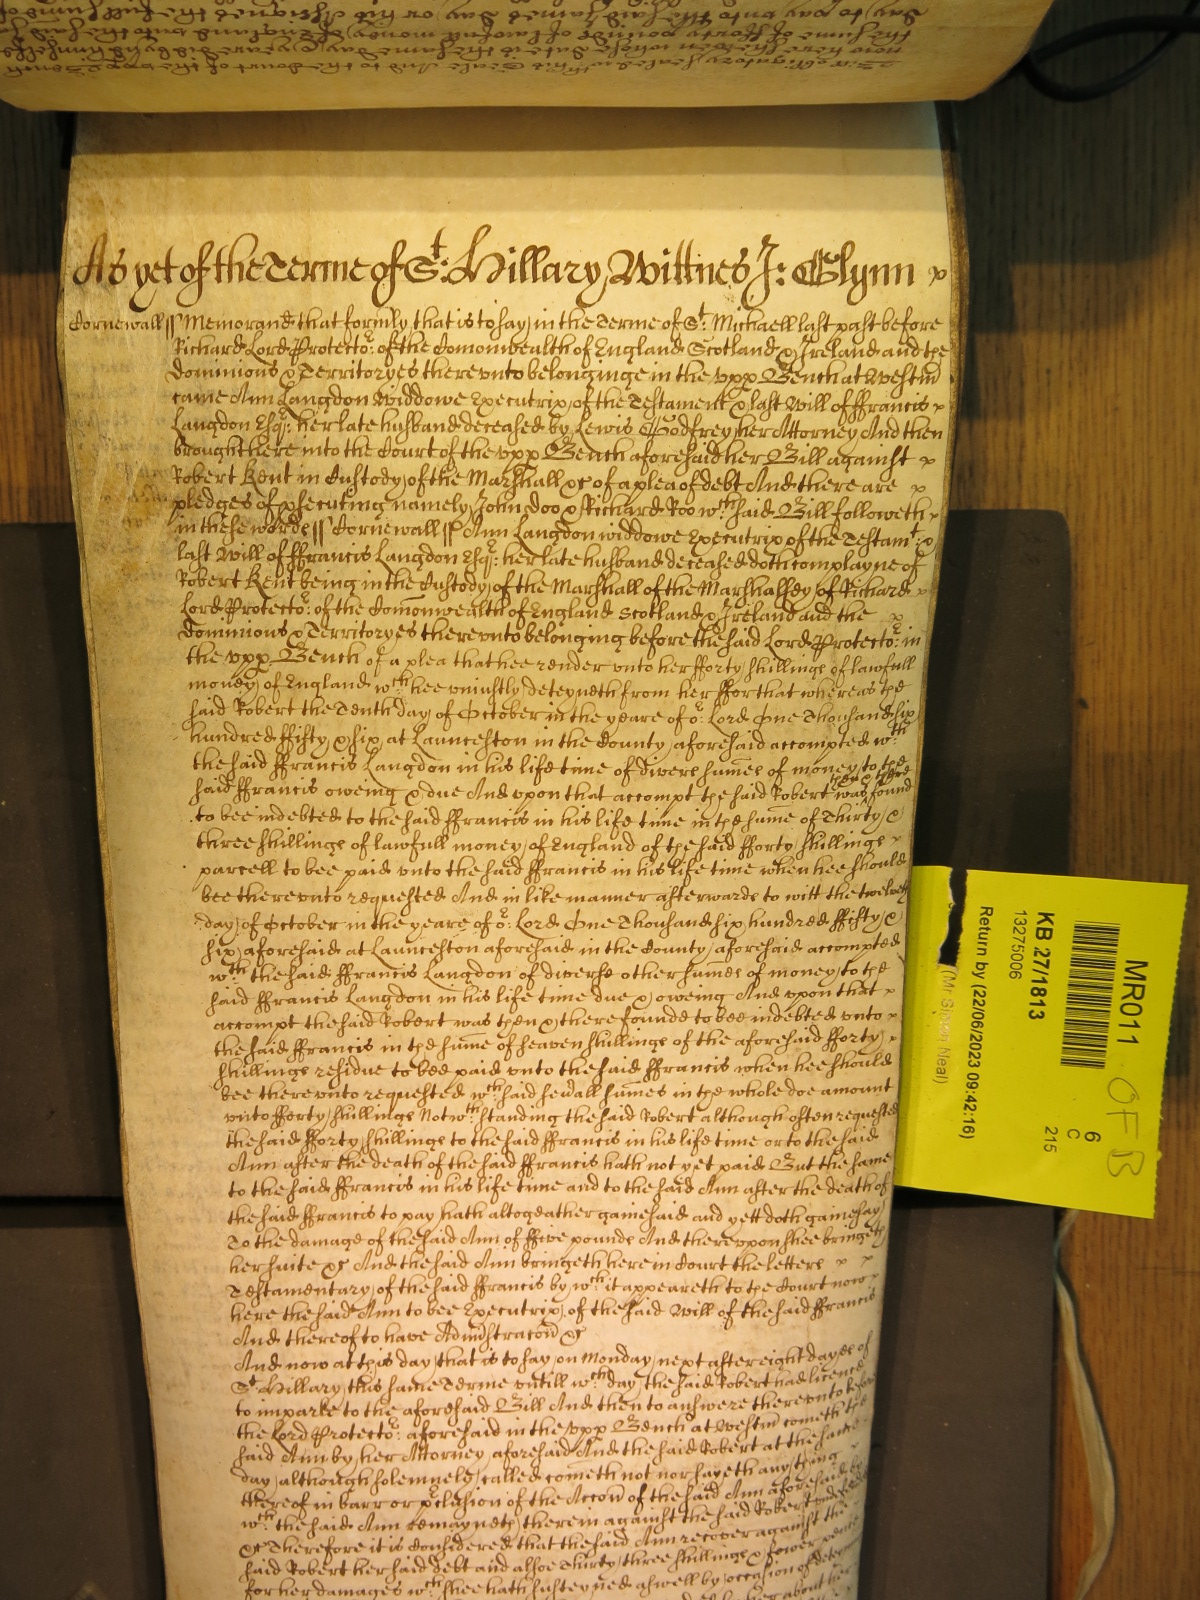 As yet of the Terme of St: Hillary, Wittnes J: Glynn
Cornewall ss Memorand that formly that is to say in the Terme of St: Michaell last past before
Richard Lord Protector: of the Comonwealth of England Scotland & Ireland and the
dominions & Territoryes therevnto belonginge in the vpp Bench at Westm
came Ann Langdon Widdowe Executrix of the Testament & last Will of ffrancis
Langdon Esqr: her late husband deceased by Lewis Godfrey her Attorney And then
brought here into the Court of the vpp Bench aforesaid her Bill against
Robert Kent in Custody of the Marshall &c of a plea of debt And there are
pledges of psecuting namely John Doo & Richard Roo wch: said Bill followeth
in these words ss Cornewall ss Ann Langdon widdowe Executrix of the Testamt: &
last Will of ffrancis Langdon Esqr: her late husband deceased doth complayne of
Robert Kent being in the Custody of the Marshall of the Marshallsey of Richard
Lord Protector: of the Comonwealth of England Scotland & Ireland and the
dominions & Territoryes therevnto belonging before the said Lord Protector: in
the vpp Bench of a plea that hee render vnto her fforty shillings of lawfull
money of England wch: hee vniustly deteyneth from her ffor that whereas the
said Robert the Tenth day of October in the yeare of or: Lord One Thousand six
hundred ffifty & six at Launceston in the County aforesaid accompted wth:
the said ffrancis Langdon in his life time of divers sumes of money to the
said ffrancis oweing & due And vpon that accompt the said Robert was then & there found
to bee indebted to the said ffrancis in his life time in the sume of Thirty &
three shillings of lawfull money of England of the said fforty shillings
parcell to bee paid vnto the said ffrancis in his life time when hee should
bee therevnto requested And in like manner afterwards to witt the twelveth
day of October in the yeare of or: Lord One Thousand six hundred ffifty &
six aforesaid at Launceston aforesaid in the County aforesaid accompted
wth: the said ffrancis Langdon of diverse other sumes of money to the
said ffrancis Langdon in his life time due & oweing And vpon that
accompt the said Robert was then & there founde to bee indebted vnto
the said ffrancis in the sume of seaven shillings of the aforesaid fforty
shillings residue to bee paid vnto the said ffrancis when hee should
bee therevnto requested wch: said sevall sumes in the whole doe amount
vnto fforty shillings Notwth:standing the said Robert although often requested
the said fforty shillings to the said ffrancis in his life time or to the said
Ann after the death of the said ffrancis hath not yet paid But the same
to the said ffrancis in his life time and to the said Ann after the death of
the said ffrancis to pay hath altogeather gainesaid and yett doth gainesay
To the damage of the said Ann of ffive pounds And therevpon shee bringeth
her suite &c And the said Ann bringeth here in Court the letters
Testamentary of the said ffrancis by wch: it appeareth to the Court now
here the said Ann to bee Executrix of the said Will of the said ffrancis
And thereof to have Administracon &c
And now at this day that is to say on Monday next after eight dayes of
St: Hillary this same Terme vntill wch: day the said Robert had licence
to imparle to the aforesaid Bill And then to answere therevnto before
the Lord Protector: aforesaid in the vpp Bench at Westm cometh the
said Ann by her Attorney aforesaid And the said Robert at the same
day although solemnely called cometh not nor sayeth any thing
thereof in barr or preclusion of the Accon of the said Ann aforesaid by
wch: the said Ann remayneth therein against the said Robert vndefended
&c Therefore it is Considered that the said Ann recover against the
said Robert her said debt and alsoe Thirty three shillings & fower pence
for her damages wch: shee hath susteyned aswell by occasion of
MR011
6
C
215
KB 27/1813
13275006
Return by (22/06/2023 09:42:16)
(Mr Simon Neal)
OF B